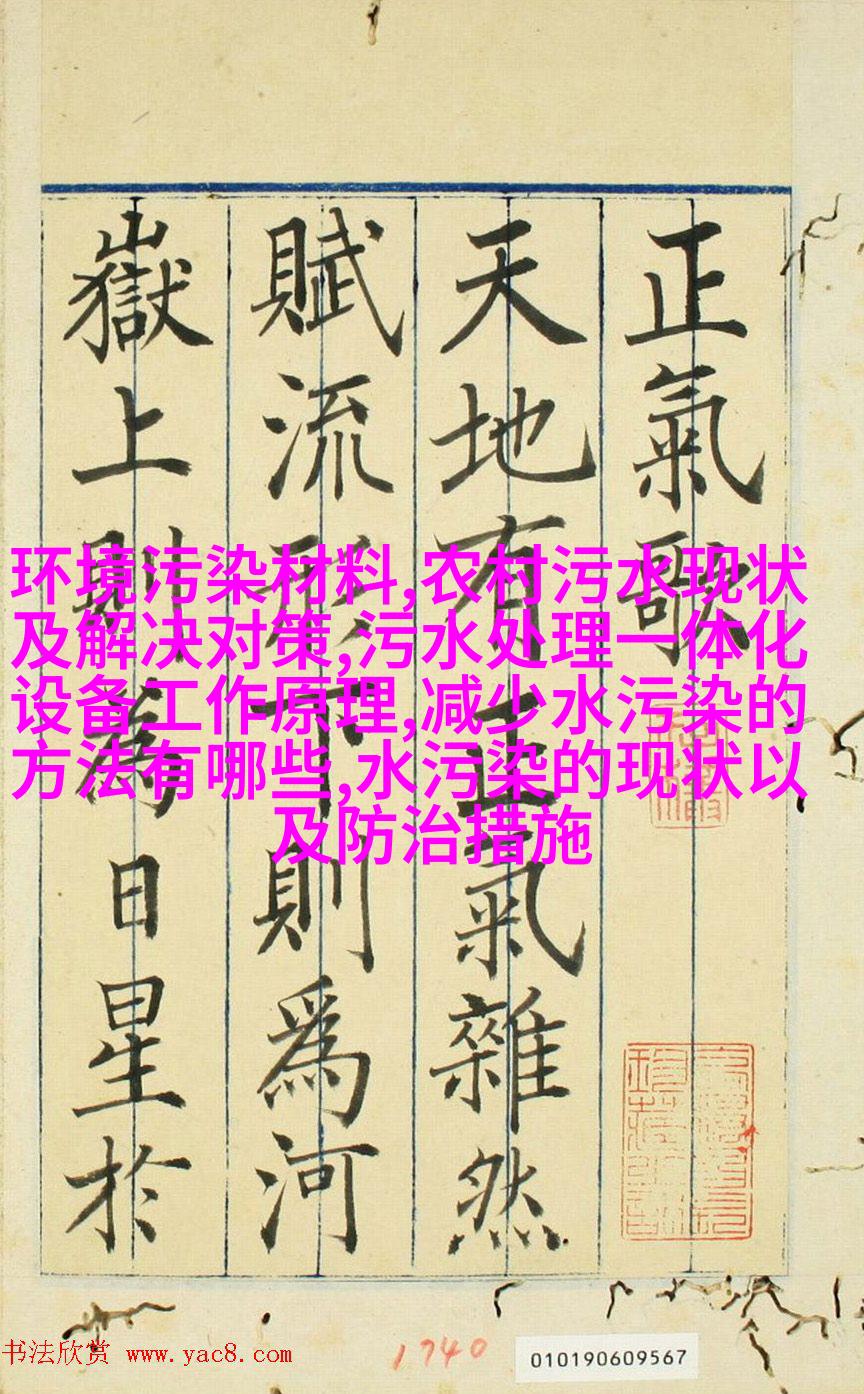 正氣歌
天地有正氣雜然
賦流形下則為河
嶽上則為日星於
环境污染材料,农村污水现状
及解决对策,污水处理一体化
设备工作原理,减少水污染的
方法有哪些,水污染的现状以
及防治措施
书法欣赏 www.yac8.com
1740
010190609567